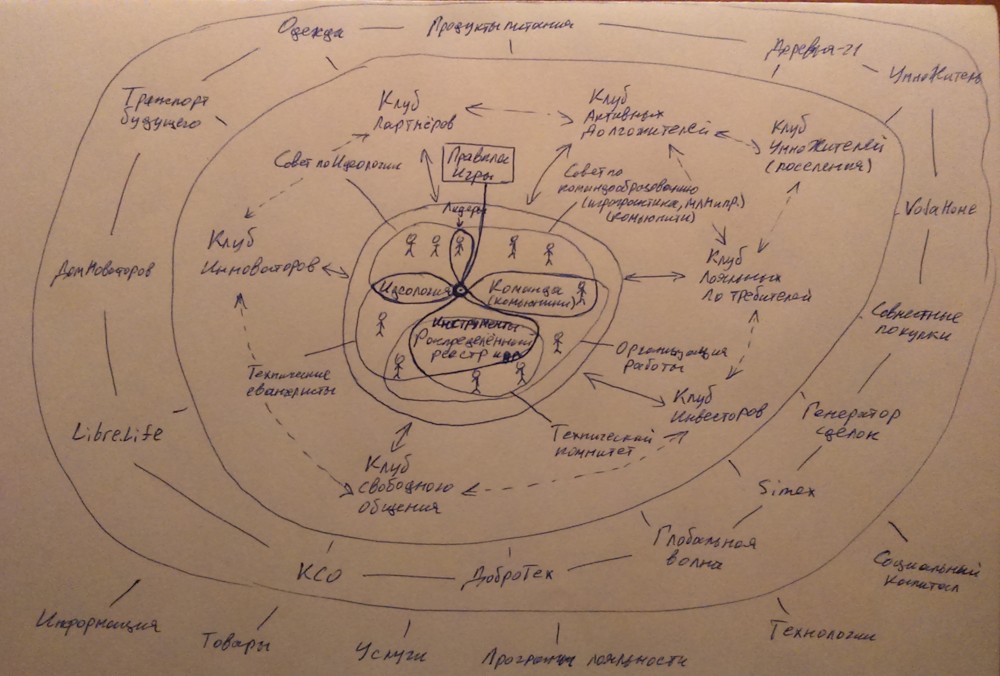 Одежда
Продукты питания
Деревня-21
УнноЖитель
Транспорт
будущего
Клуб
Партнёров
Клуб
Активных
Долгожителей
Клуб
УнноЖителей
(поселения)
Совет по Идеологии
Правила
Игры
Совет по
командообразованию
(игропрактика, МЛМ и пр.)
(комьюнити)
Лидеры
VolaHome
Клуб
Инноваторов
Клуб
Лояльных
Потребителей
ДомНоваторов
Идеология
Команда
(комьюнити)
Совместные
покупки
Инструменты
Распределённый
реестр
Организация
работы
Технические
евангелисты
Клуб
Инвесторов
Генератор
сделок
LibreLife
Технический
комитет
Клуб
свободного
общения
Simex
Глобальная
волна
КСО
ДоброТех
Социальный
капитал
Информация
Товары
Услуги
Программы лояльности
Технологии